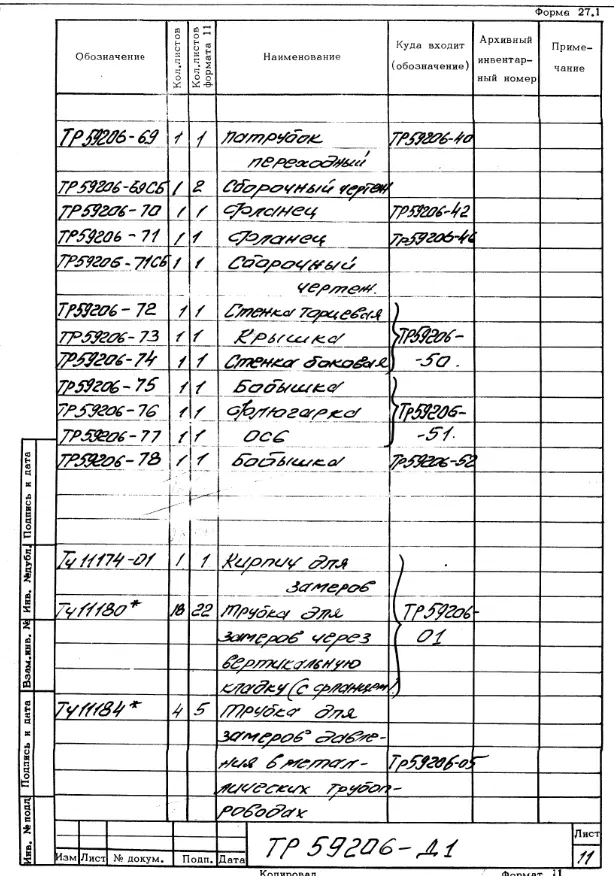 Форма 27.1
Обозначение Кол.листов Кол.листов формата 11 Наименование Куда входит (обозначение) Архивный инвентар- ный номер Приме- чание
ТР59206-69 1 1 Патрубок ТР59206-40
переходный
ТР59206-69СБ 1 2 Сборочный чертеж
ТР59206-70 1 1 Фланец ТР59206-42
ТР59206-71 1 1 Фланец ТР59206-46
ТР59206-71СБ 1 1 Сборочный
чертеж.
ТР59206-72 1 1 Стенка торцевая
ТР59206-73 1 1 Крышка ТР59206-
ТР59206-74 1 1 Стенка боковая -50.
ТР59206-75 1 1 Бобышка
ТР59206-76 1 1 Флюгарка ТР59206-
ТР59206-77 1 1 Ось -51.
ТР59206-78 1 1 Бобышка ТР59206-52
ТУ 11174-01 1 1 Кирпич для
замеров
ТУ 11180* 18 22 Трубка для ТР59206-
замеров через 01
вертикальную
кладку (с фланцем)
ТУ 11184* 4 5 Трубка для
замеров давле-
ния в метал- ТР59206-05
лических трубоп-
роводах
Инв. № подл Подпись и дата Взам.инв. № Инв. №дубл. Подпись и дата
ТР 59206-Д1
Лист
11
Изм Лист № докум. Подп. Дата
Копировал Формат 11